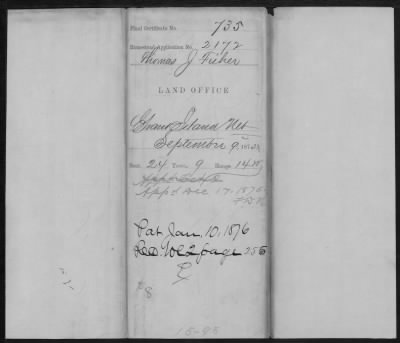 Final Certificate No. 735
Homestead Application No. 2172
Thomas J Fisher
LAND OFFICE
Grand Island Neb
September 9
Sect. 24 Town. 9 Range 14 W
App'd Dec 17, 1875
Pat Jan, 10, 1876
Rec Vol 2 page 255
15-95